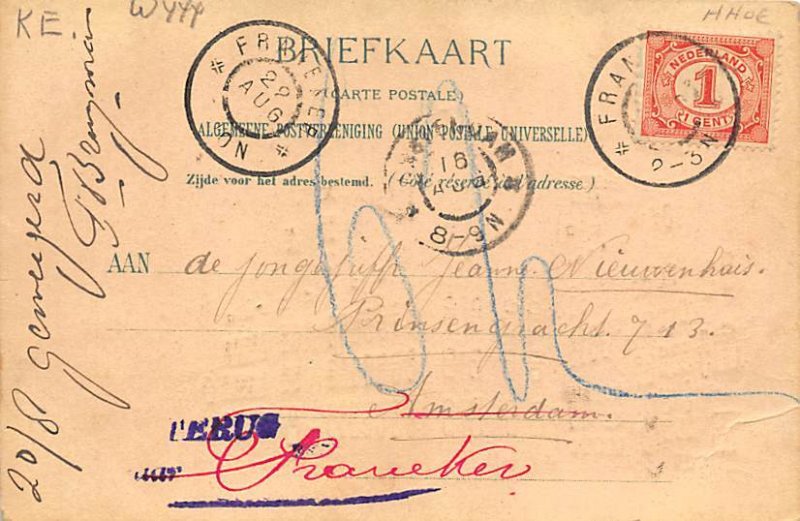 KE
W444
HHOE
BRIEFKAART
(CARTE POSTALE.)
ALGEMEENE POSTVEREENIGING (UNION POSTALE UNIVERSELLE)
Zijde voor het adres bestemd. (Côté réservé à l'adresse.)
FRANEKER
22
AUG
NEDERLAND
1
1 CENT
FRAN
2-3N
AMSTERDAM
16
AUG
8-9N
AAN de jongejuffr Jeanne Nieuwenhuis.
Prinsengracht. 713.
Amsterdam.
TERUG
naar Franeker
20/8 geweigerd